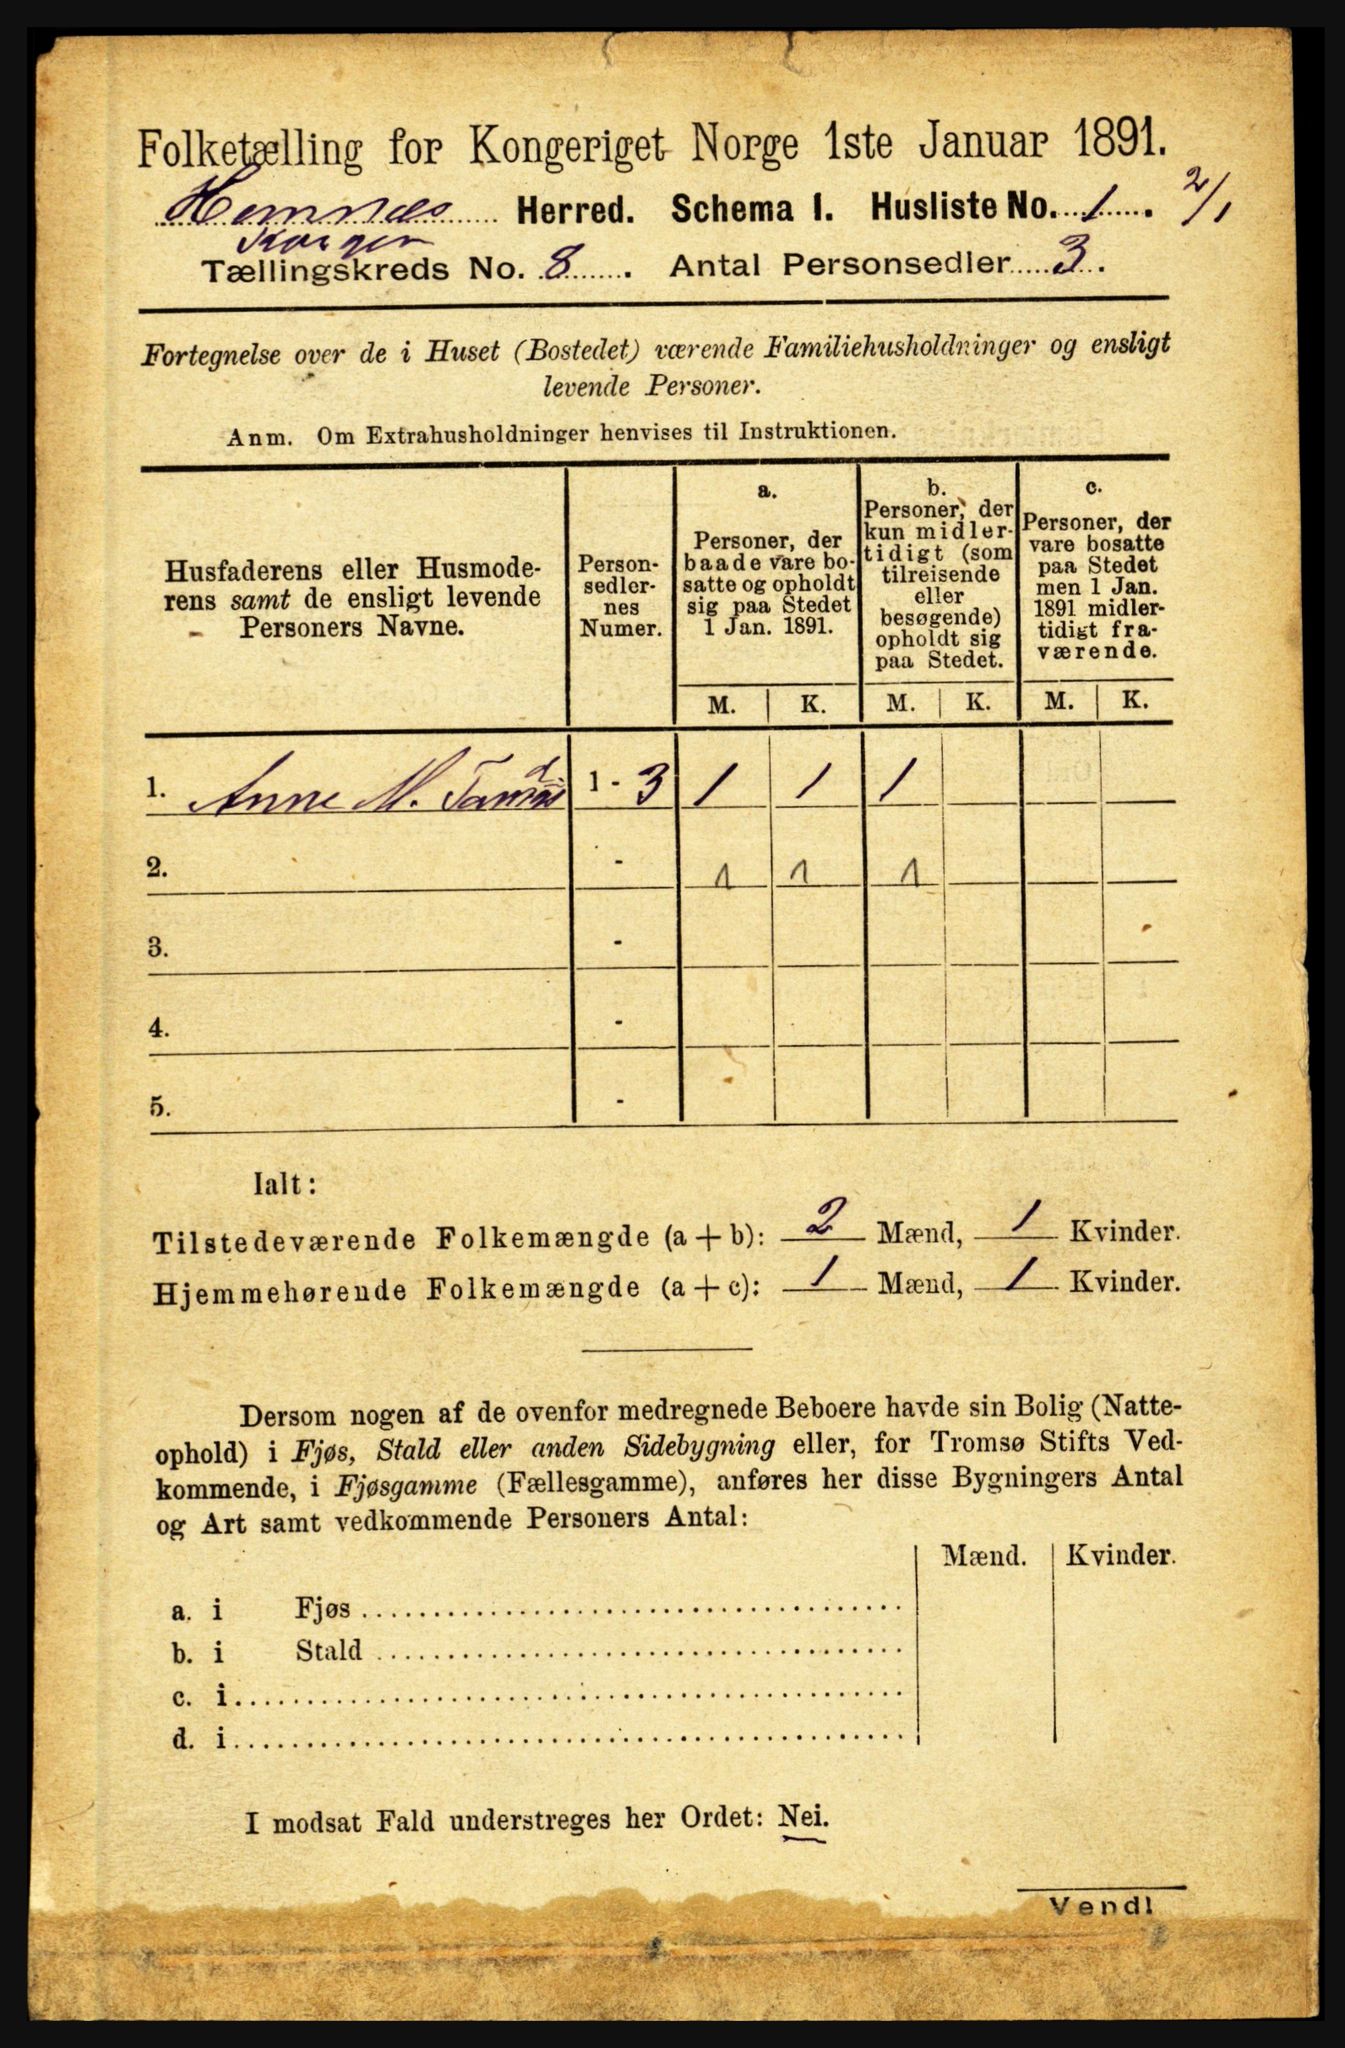 Folketælling for Kongeriget Norge 1ste Januar 1891.
Hemnæs Herred. Schema I. Husliste No. 1. 2/1
Korgen
Tællingskreds No. 8. Antal Personsedler 3.
Fortegnelse over de i Huset (Bostedet) værende Familiehusholdninger og ensligt
levende Personer.
Anm. Om Extrahusholdninger henvises til Instruktionen.
Husfaderens eller Husmode-
rens samt de ensligt levende
Personers Navne.
Person-
sedler-
nes
Numer.
a.
Personer, der
baade vare bo-
satte og opholdt
sig paa Stedet
1 Jan. 1891.
b.
Personer, der
kun midler-
tidigt (som
tilreisende
eller
besøgende)
opholdt sig
paa Stedet.
c.
Personer, der
vare bosatte
paa Stedet
men 1 Jan.
1891 midler-
tidigt fra-
værende.
M. K. M. K. M. K.
1. Anne M. 1 - 3 1 1 1
2. - 1 1 1
3. -
4. -
5. -
Ialt:
Tilstedeværende Folkemængde (a + b): 2 Mænd, 1 Kvinder.
Hjemmehørende Folkemængde (a + c): 1 Mænd, 1 Kvinder.
Dersom nogen af de ovenfor medregnede Beboere havde sin Bolig (Natte-
ophold) i Fjøs, Stald eller anden Sidebygning eller, for Tromsø Stifts Ved-
kommende, i Fjøsgamme (Fællesgamme), anføres her disse Bygningers Antal
og Art samt vedkommende Personers Antal:
Mænd. Kvinder.
a. i Fjøs
b. i Stald
c. i
d. i
I modsat Fald understreges her Ordet: Nei.
Vend!